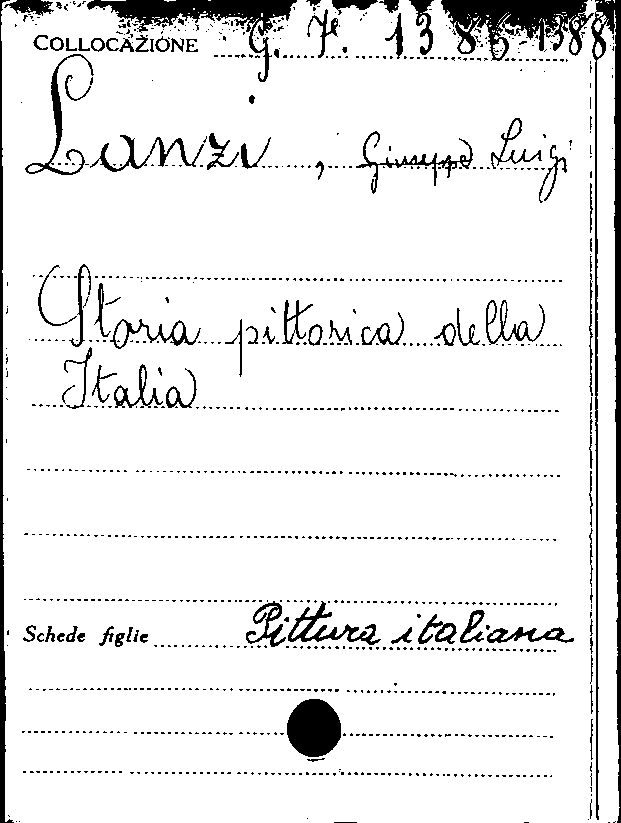 COLLOCAZIONE G. 7e. 1386-1388
Lanzi, Giuseppe Luigi
Storia pittorica della
Italia
Schede figlie Pittura italiana